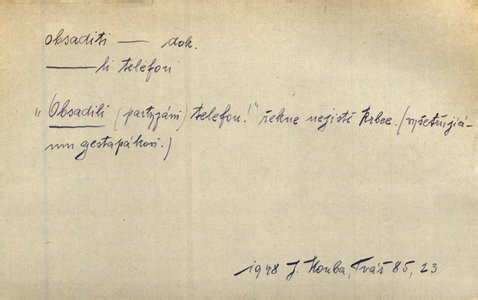 obsaditi — dok.
—li telefon
"Obsadili (partyzáni) telefon!" řekne nejistě Krbec. (vyšetřujícímu gestapákovi.)
1948 J. Kouba, Tvář 85, 23